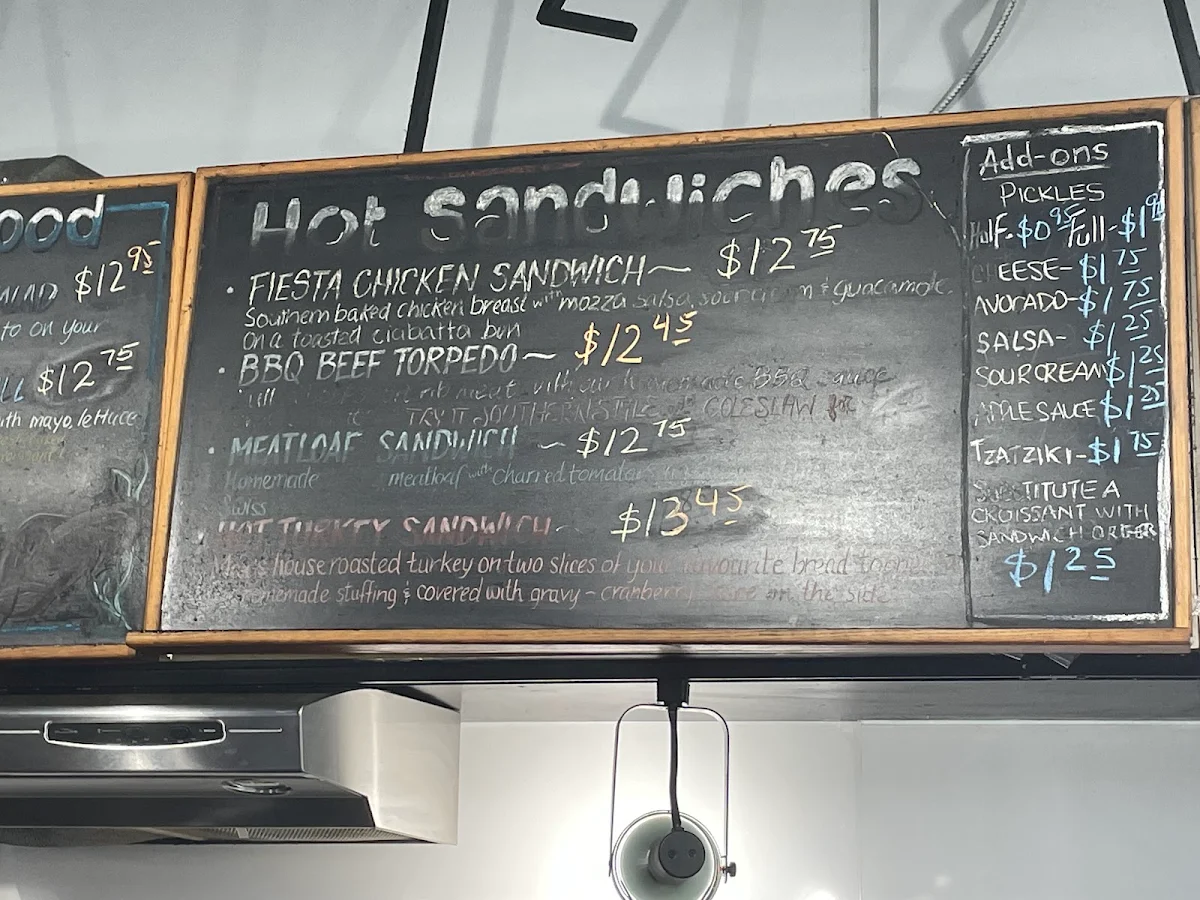 ood
$12 95
to on your
$12 75
mayo, lettuce
Hot Sandwiches
• FIESTA CHICKEN SANDWICH~ $12 75
Southern baked chicken breast with mozza salsa, sour cream & guacamole
On a toasted ciabatta bun
• BBQ BEEF TORPEDO~ $12 45
rib meat with our homemade BBQ sauce
TRY IT SOUTHERN STILE COLESLAW for
• MEATLOAF SANDWICH ~ $12 75
Homemade meatloaf with charred tomato
Swiss
HOT TURKEY SANDWICH~ $13 45
house roasted turkey on two slices of your favourite bread
homemade stuffing & covered with gravy - cranberry on the side
Add-ons
PICKLES
Half-$0 95 Full-$1
CHEESE-$1 75
AVOCADO-$1 75
SALSA- $1 25
SOUR CREAM $1 25
APPLE SAUCE $1 25
TZATZIKI-$1 75
SUBSTITUTE A
CROISSANT WITH
SANDWICH ORDER
$1 25